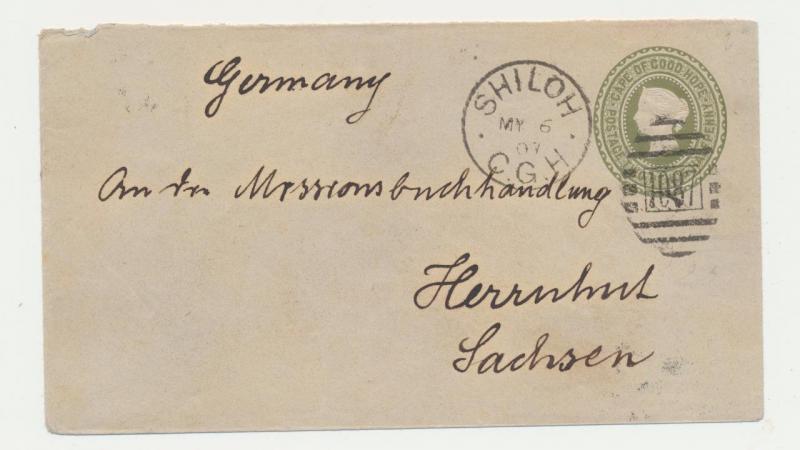 Germany
SHILOH
MY 6
07
C.G.H
POSTAGE CAPE OF GOOD HOPE
1087
An die Missionsbuchhandlung
Herrnhut
Sachsen